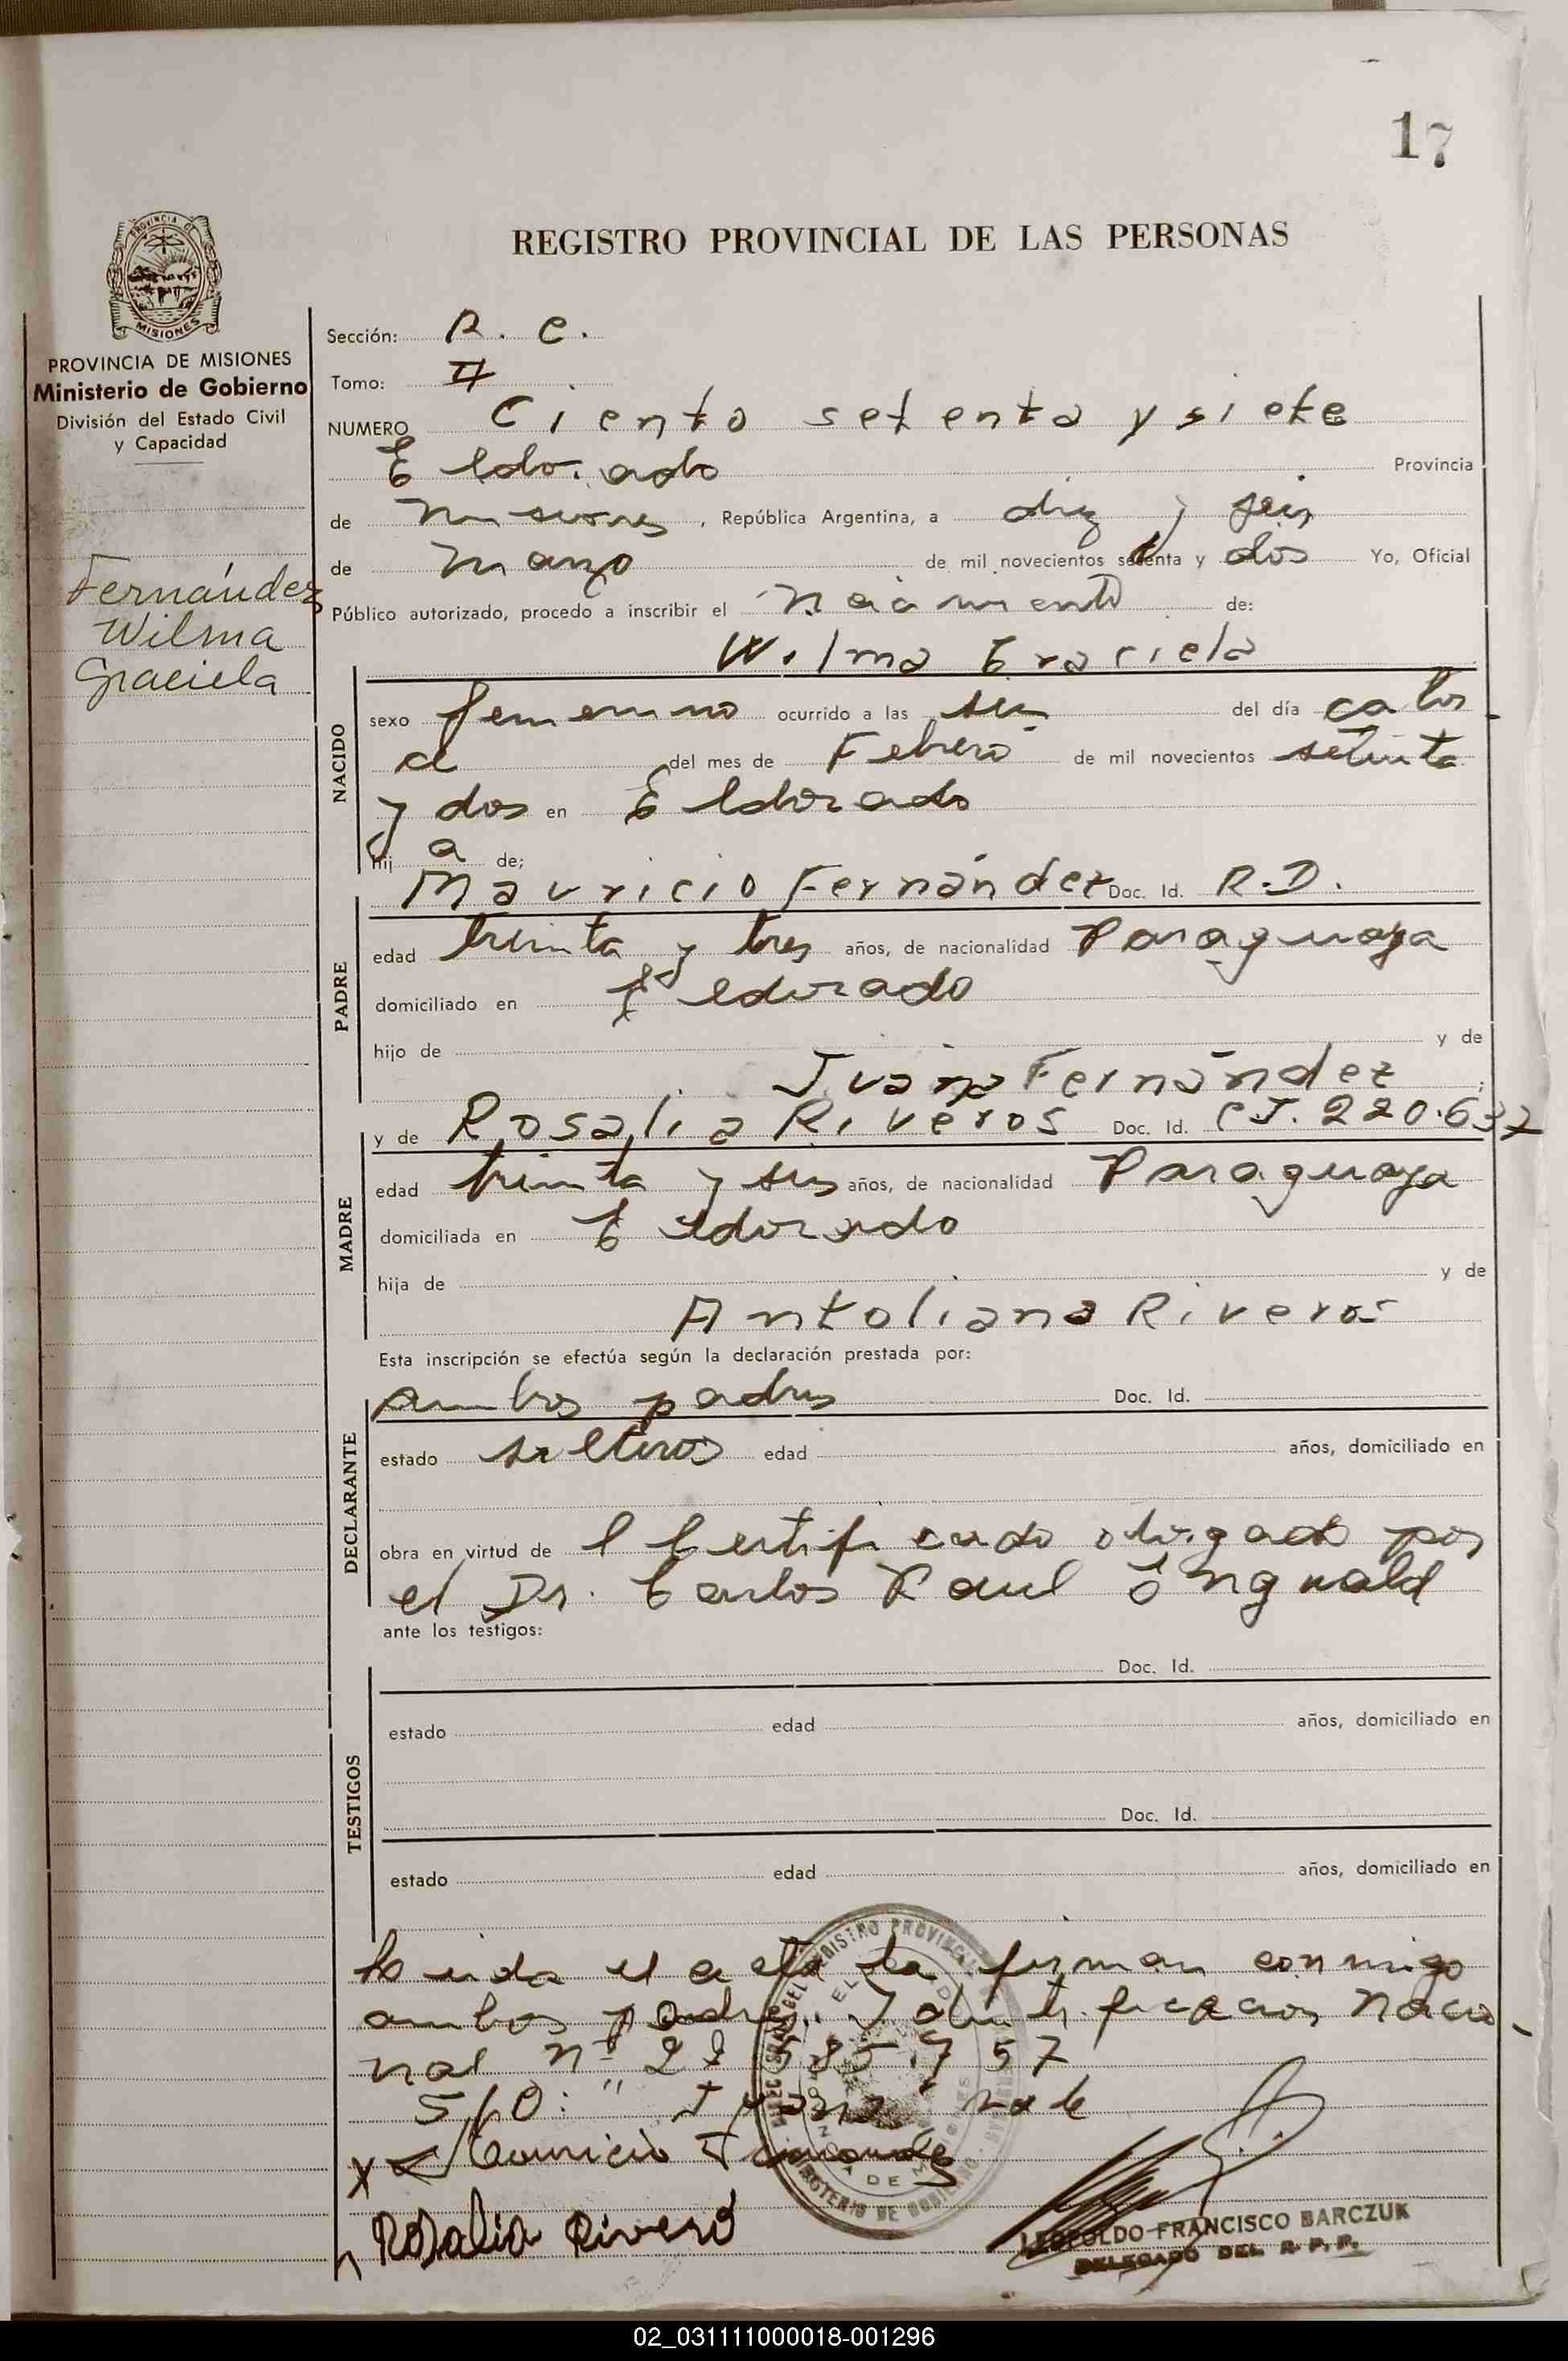 17
REGISTRO PROVINCIAL DE LAS PERSONAS
PROVINCIA DE MISIONES
Ministerio de Gobierno
División del Estado Civil
y Capacidad
Fernández
Wilma
Graciela
Sección: R. C.
Tomo: II
NUMERO Ciento setenta y siete
Eldorado Provincia
de Misiones, República Argentina, a diez y seis
de Marzo de mil novecientos setenta y dos Yo, Oficial
Público autorizado, procedo a inscribir el Nacimiento de:
Wilma Graciela
NACIDO
sexo femenino ocurrido a las seis del día cator-
ce del mes de Febrero de mil novecientos setenta
y dos en Eldorado
hij a de;
Mauricio Fernández Doc. Id. R.D.
PADRE
edad treinta y tres años, de nacionalidad Paraguaya
domiciliado en Eldorado
hijo de y de
Juana Fernández
y de Rosalia Riveros Doc. Id. C.I. 220.637
MADRE
edad treinta y seis años, de nacionalidad Paraguaya
domiciliada en Eldorado
hija de y de
Antoliana Riveros
Esta inscripción se efectúa según la declaración prestada por:
DECLARANTE
ambos padres Doc. Id.
estado solteros edad años, domiciliado en
obra en virtud de l Certificado otorgado por
el Dr. Carlos Raul
ante los testigos:
TESTIGOS
Doc. Id.
estado edad años, domiciliado en
Doc. Id.
estado edad años, domiciliado en
Leida el acta la firman conmigo
ambos padres. Identificacion Nacio-
nal Nº
S/O: "Juana" vale
x Mauricio Fernandez
Rosalia Rivero
LEOPOLDO FRANCISCO BARCZUK
DELEGADO DEL R. P. P.
02_031111000018-001296